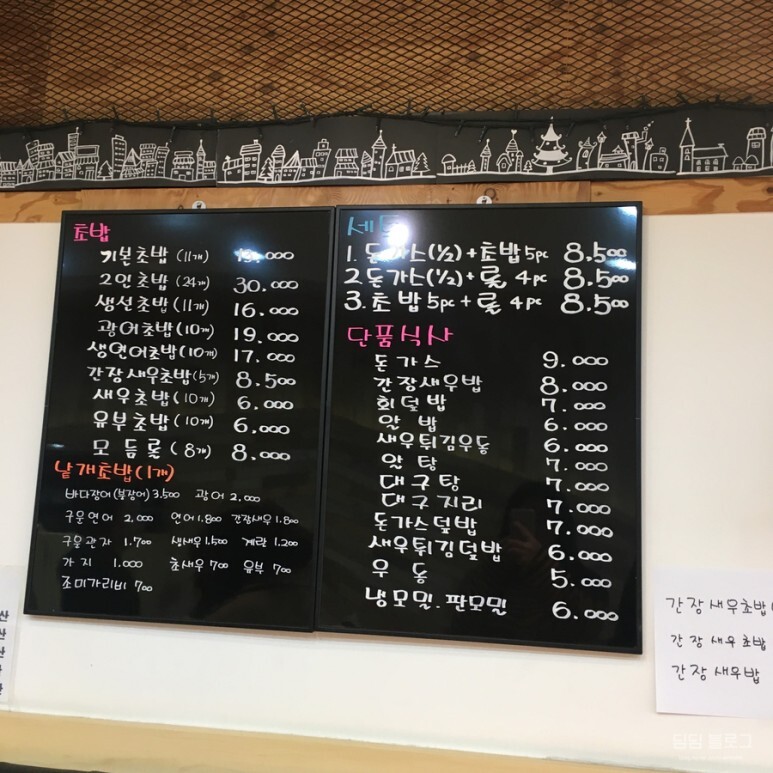 초밥
기본초밥 (11개) .000
2인초밥 (24개) 30.000
생선초밥 (11개) 16.000
광어초밥 (10개) 19.000
생연어초밥 (10개) 17.000
간장새우초밥 (5개) 8.500
새우초밥 (10개) 6.000
유부초밥 (10개) 6.000
모듬롤 (8개) 8.000
낱개초밥 (1개)
바다장어(붕장어) 3.500 광어 2.000
구운연어 2.000 연어 1.800 간장새우 1.800
구운관자 1.700 생새우 1.500 계란 1.200
가지 1.000 초새우 700 유부 700
조미가리비 700
세트
1. 돈가스(1/2)+초밥 5pc 8.500
2. 돈가스(1/2)+롤 4pc 8.500
3. 초밥 5pc + 롤 4pc 8.500
단품식사
돈가스 9.000
간장새우밥 8.000
회덮밥 7.000
알밥 6.000
새우튀김우동 6.000
알탕 7.000
대구탕 7.000
대구지리 7.000
돈가스덮밥 7.000
새우튀김덮밥 6.000
우동 5.000
냉모밀.판모밀 6.000
간장새우초밥(
간장새우초밥
간장새우밥
산
산
산
딤딤 블로그